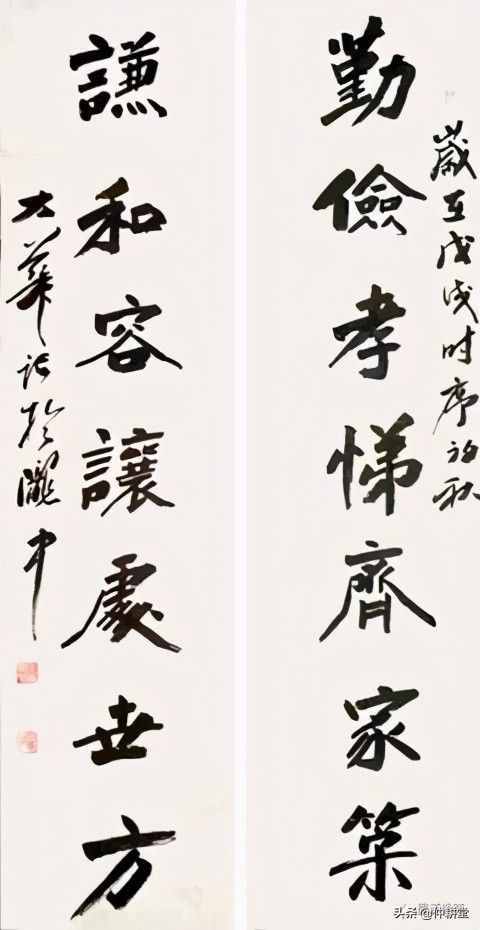 歲在戊戌时序初秋
勤儉孝悌齊家策
謙和容讓處世方
大華记於隴中
头条@仲耕堂